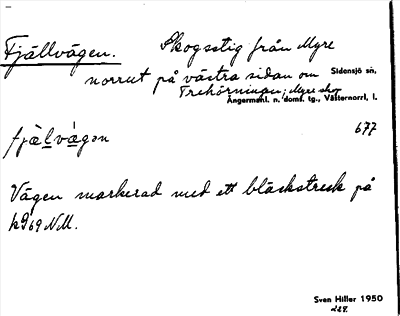 Fjällvägen. Skogsstig från Myre
norrut på västra sidan om Sidensjö sn,
Trehörningen; Myre skog
Ångermanl. n. doms. tg., Västernorrl. l.
fjɛ̀lvɛ̀gən 677
Vägen markerad med ett bläckstreck på
k969 NM.
Sven Hiller 1950